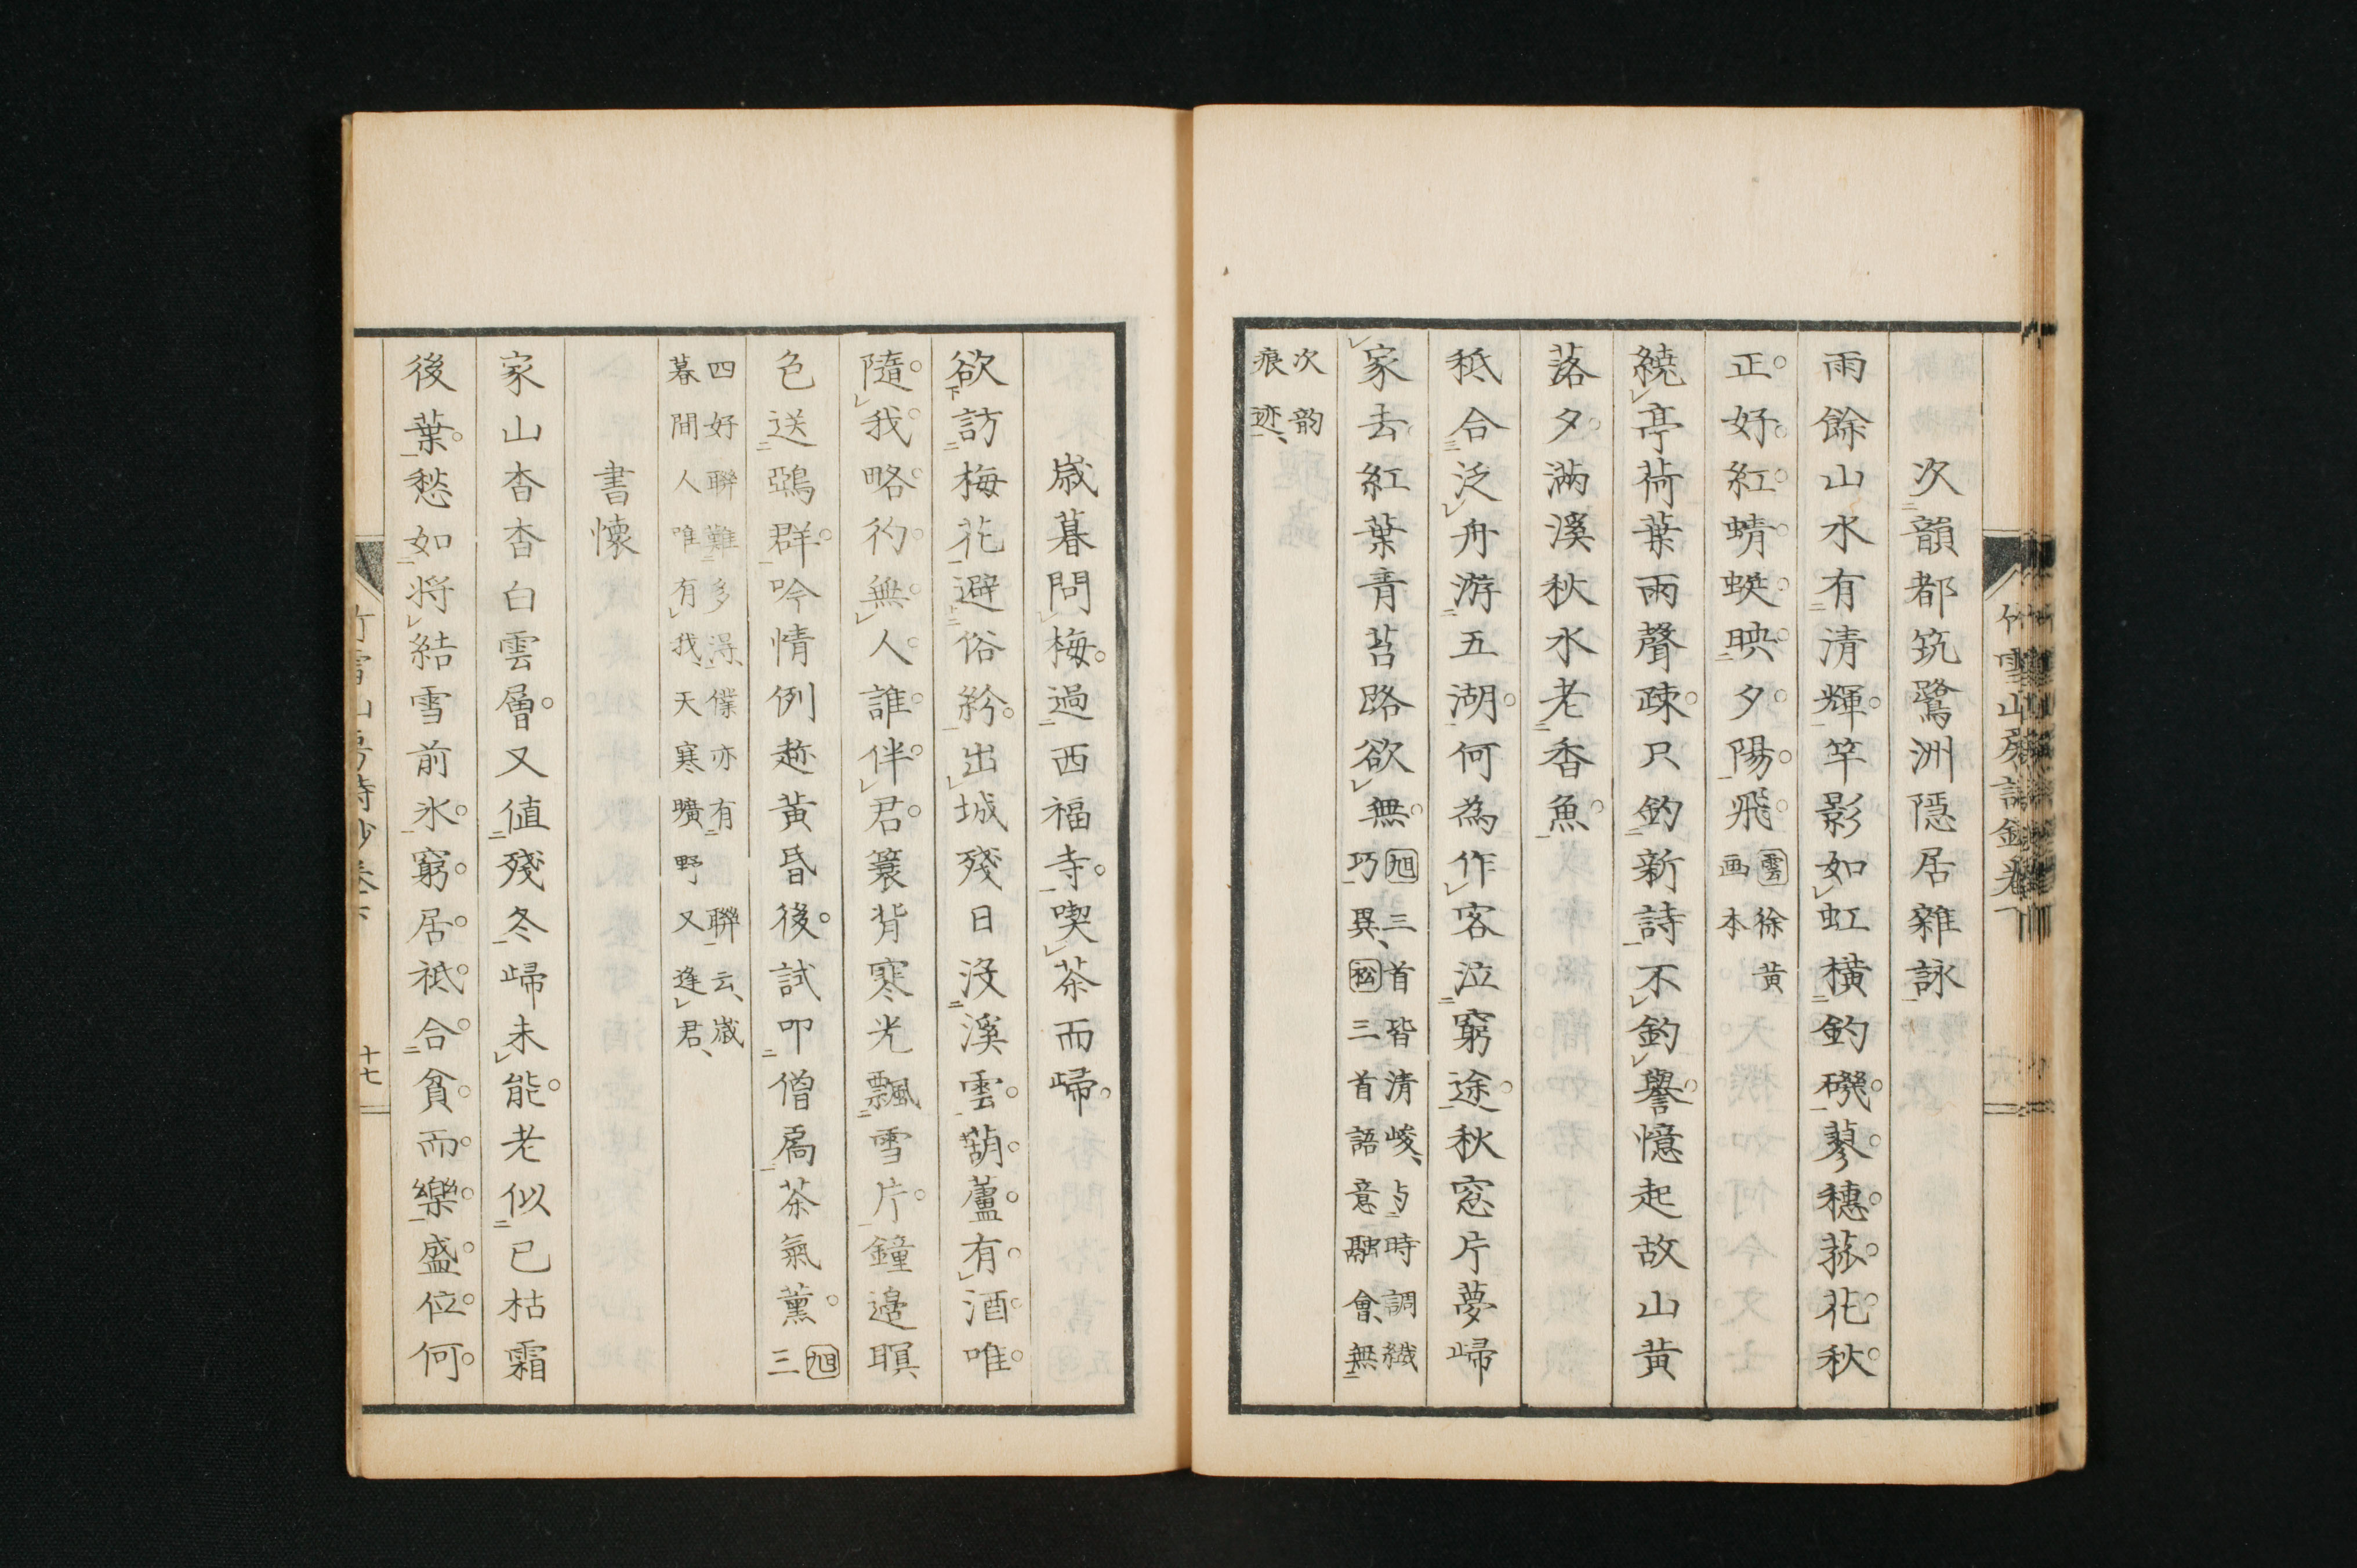 次韻都筑鷺洲隱居雜詠
雨餘山水有清輝。竿影如虹橫釣磯。蓼。穗。菰。花。秋。
正。好。紅。蜻。蜓。映。夕。陽。飛。雲徐黃
画本
繞亭荷葉雨聲疎。只釣新詩不釣譽。憶起故山黃
落夕滿溪秋水老香魚。
秪合泛舟游五湖。何為作客泣窮途。秋窓片夢歸
家去紅葉青苔路欲無。旭三首皆清峻、与時調纖
巧異、松三首語意融會、無
次韵
痕迹、
歳暮問梅。過西福寺。喫茶而歸。
欲訪梅花避俗紛。出城殘日沒溪雲。葫。蘆。有。酒。唯。
隨。我。略。彴。無。人。誰。伴。君。簑背寒光飄雪片。鐘邊暝
色送鵶群。吟情例趂黃昏後。試叩僧扄茶氣薰。旭三
四好聯難多得、僕亦有聯云、歳
暮間人唯有我、天寒曠野又逢君、
書懷
家山杳杳白雲層。又値殘冬歸未能。老似已枯霜
後葉。愁如將結雪前氷。窮。居。祗。合。貧。而。樂。盛。位。何。
十七